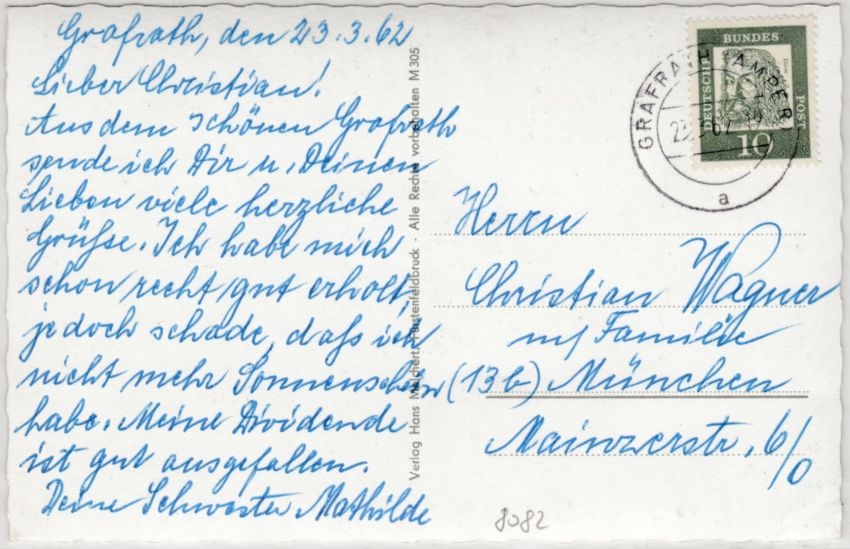 Grafrath, den 23.3.62
Lieber Christian!
Aus dem schönen Grafrath
sende ich Dir u. Deinen
Lieben viele herzliche
Grüße. Ich habe mich
schon recht gut erholt,
jedoch schade, daß ich
nicht mehr Sonnenschein
habe. Meine Dividende
ist gut ausgefallen.
Deine Schwester Mathilde
Verlag Hans Melchert, Fürstenfeldbruck - Alle Rechte vorbehalten M 305
DEUTSCHE
BUNDES
POST
10
GRAFRATH
AMPER
a
Herrn
Christian Wagner
m/ Familie
(13b) München
Mainzerstr. 6/0
8082